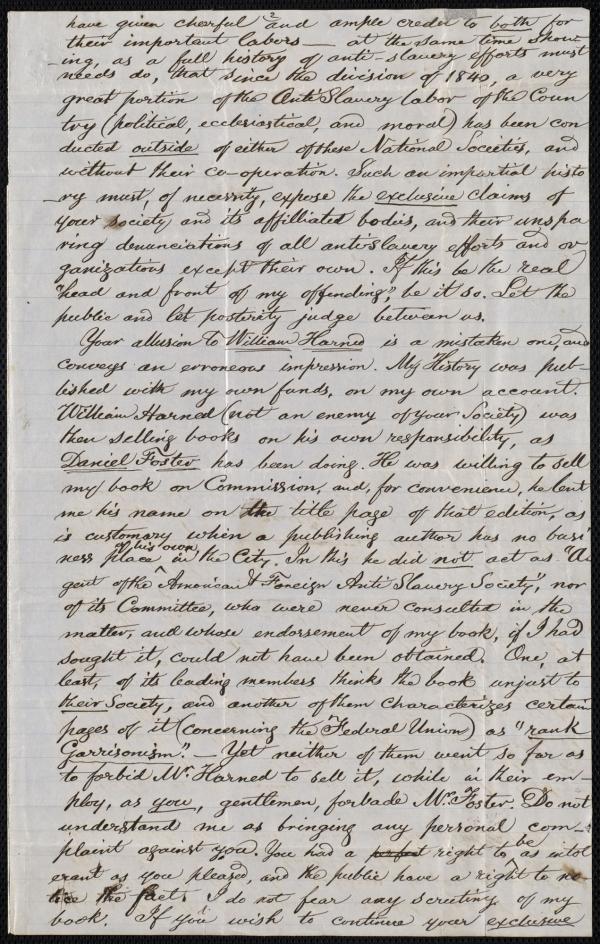 2
have given cheerful and ample credit to both for
their important labors — at the same time show-
-ing, as a full history of anti-slavery efforts must
needs do, that since the division of 1840, a very
great portion of the Anti Slavery labor of the Coun
try (political, ecclesiastical, and moral) has been con
ducted outside of either of these National Societies, and
without their co-operation. Such an impartial histo
-ry must, of necessity, expose the exclusive claims of
your society and its affiliated bodies, and their unspa
ring denunciations of all antislavery efforts and or
ganizations except their own. If this be the real
"head and front of my offending", be it so. Let the
public and let posterity judge between us.
Your allusion to William Harned is a mistaken one, and
conveys an erroneous impression. My History was pub-
lished with my own funds, on my own account.
William Harned (not an enemy of your Society) was
then selling books on his own responsibility, as
Daniel Foster has been doing. He was willing to sell
my book on Commission, and, for convenience, he lent
me his name on the title page of that edition, as
is customary when a publishing author has no busi
ness place of his own in the City. In this he did not act as "A
gent of the American & Foreign Anti Slavery Society", nor
of its Committee, who were never consulted in the
matter, and whose endorsement of my book, if I had
sought it, could not have been obtained. One, at
least, of its leading members thinks the book unjust to
their Society, and another of them characterizes certain
pages of it (concerning the Federal Union) as "rank
Garrisonism". — Yet neither of them went so far as
to forbid Mr. Harned to sell it, while in their em-
ploy, as you, gentlemen, forbade Mr. Foster. Do not
understand me as bringing any personal com-
plaint against you. You had a perfect right to be as intol
erant as you pleased, and the public have a right to no-
tice the fact. I do not fear any scrutiny of my
book. If you wish to continue your exclusive